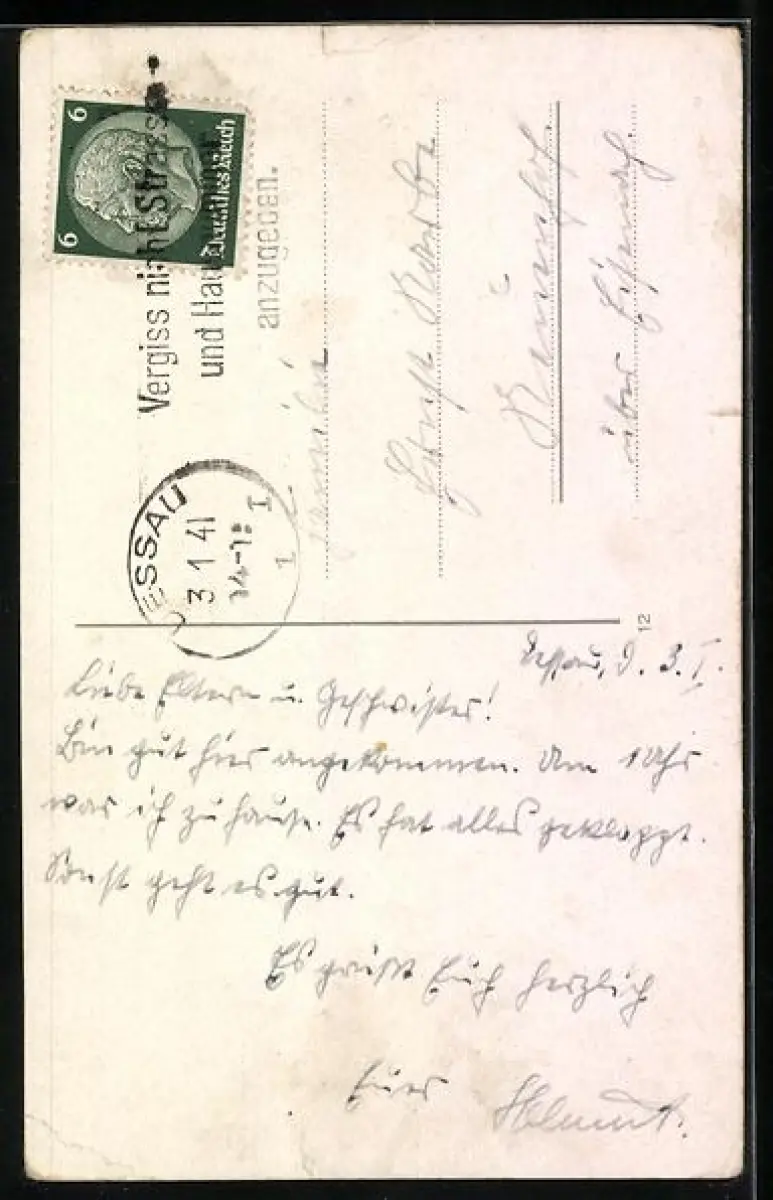 6
6
Deutsches Reich
Vergiss nicht Strasse
und Hau
anzugeben.
DESSAU
3 1 41
I
1
Familie
Ernst
über Eisenach
12
Dessau, d. 3. I.
Liebe Eltern u. Geschwister!
Bin gut hier angekommen. Um 1 Uhr
war ich zu hause. Es hat alles geklappt.
Sonst geht es gut.
Es grüßt Euch herzlich
Euer Helmut.